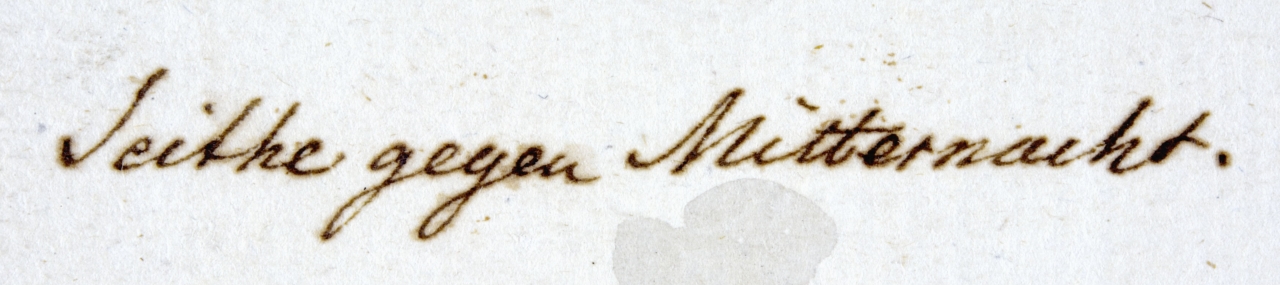 Seithe gegen Mitternacht.